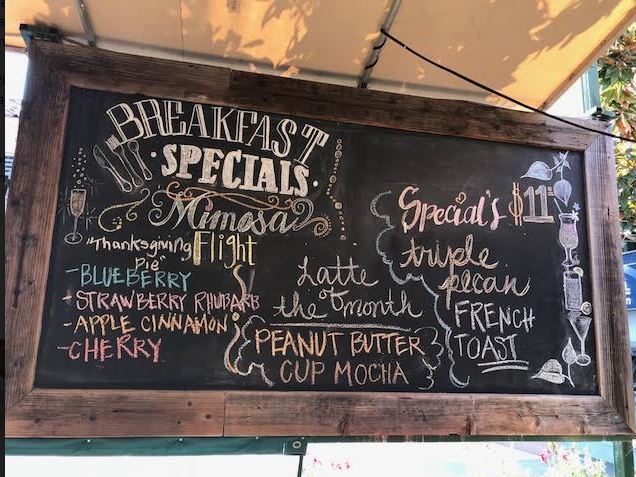 BREAKFAST
·SPECIALS·
Mimosa
"Thanksgiving Flight
Pie"
-BLUEBERRY
-STRAWBERRY RHUBARB
-APPLE CINNAMON
-CHERRY
Latte
of
the month
PEANUT BUTTER
CUP MOCHA
Special's $11
triple
pecan
FRENCH
TOAST